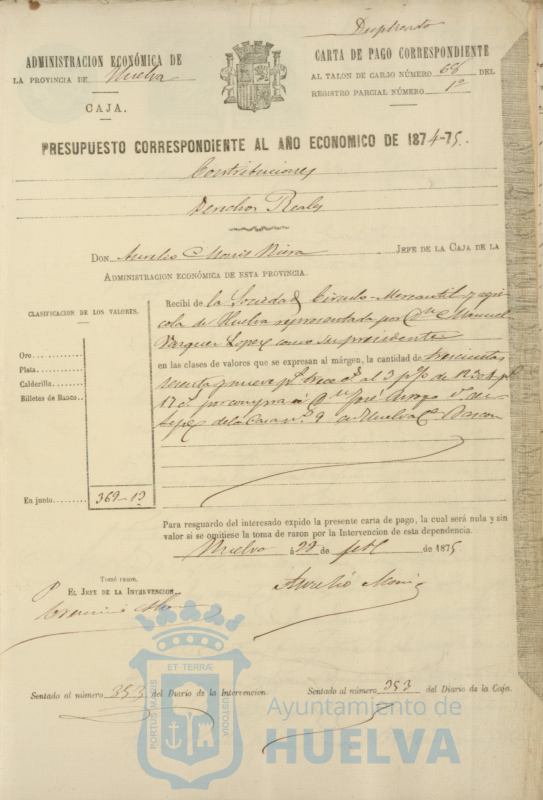 Duplicado
ADMINISTRACION ECONÓMICA DE
LA PROVINCIA DE Huelva
CAJA.
CARTA DE PAGO CORRESPONDIENTE
AL TALON DE CARGO NÚMERO 68 DEL
REGISTRO PARCIAL NÚMERO 1º
PRESUPUESTO CORRESPONDIENTE AL AÑO ECONOMICO DE 1874-75.
Contribuciones
Derechos Reales
DON Aurelio JEFE DE LA CAJA DE LA
ADMINISTRACION ECONÓMICA DE ESTA PROVINCIA.
CLASIFICACION DE LOS VALORES.
Oro
Plata
Calderilla
Billetes de Banco
En junto 369-13
Recibí de la Sociedad Circulo-Mercantil y agri
cola de Huelva representada por Dn Manuel
Vazquez Lopez como su presidente
en las clases de valores que se expresan al márgen, la cantidad de trecientas
sesenta y nueve pts trece cs al 3 p% de 12304 pts
17 cs por compra á Dn José
de la Casa nº 9 Huelva
Para resguardo del interesado expido la presente carta de pago, la cual será nula y sin
valor si se omitiese la toma de razon por la Intervencion de esta dependencia.
Huelva á 22 de de 1875
Tomé razon.
EL JEFE DE LA INTERVENCION
Aurelio
Sentado al número 353 del Diario de la Intervencion.
Sentado al número 353 del Diario de la Caja.
ET TERRÆ
PORTUS MARIS
CUSTODIA
Ayuntamiento de
HUELVA